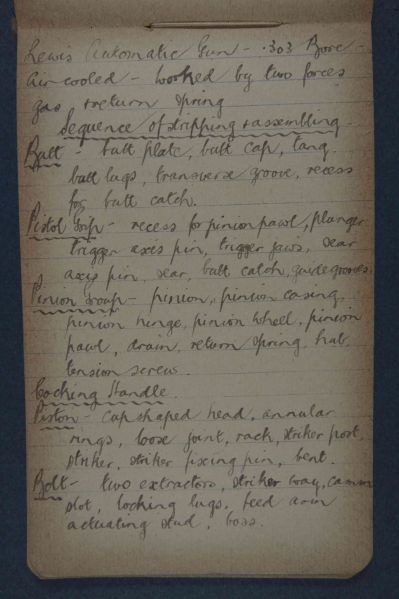 Lewis Automatic Gun - .303 Bore -
Air cooled - worked by two forces
gas & return spring
Sequence of stripping & assembling
Butt - butt plate, butt cap, tang,
butt lugs, transverse groove, recess
for butt catch.
Pistol Grip - recess for pinion pawl, plunger
trigger axis pin, trigger jaws, sear
axis pin, sear, butt catch, guide grooves.
Pinion Group - pinion, pinion casing,
pinion hinge, pinion wheel, pinion
pawl, drum, return spring, hub,
tension screw.
Cocking Handle.
Piston - cup shaped head, annular
rings, loose joint, rack, striker post,
striker, striker fixing pin, bent.
Bolt - two extractors, striker way, camm
slot, locking lugs, feed arm
actuating stud, boss.